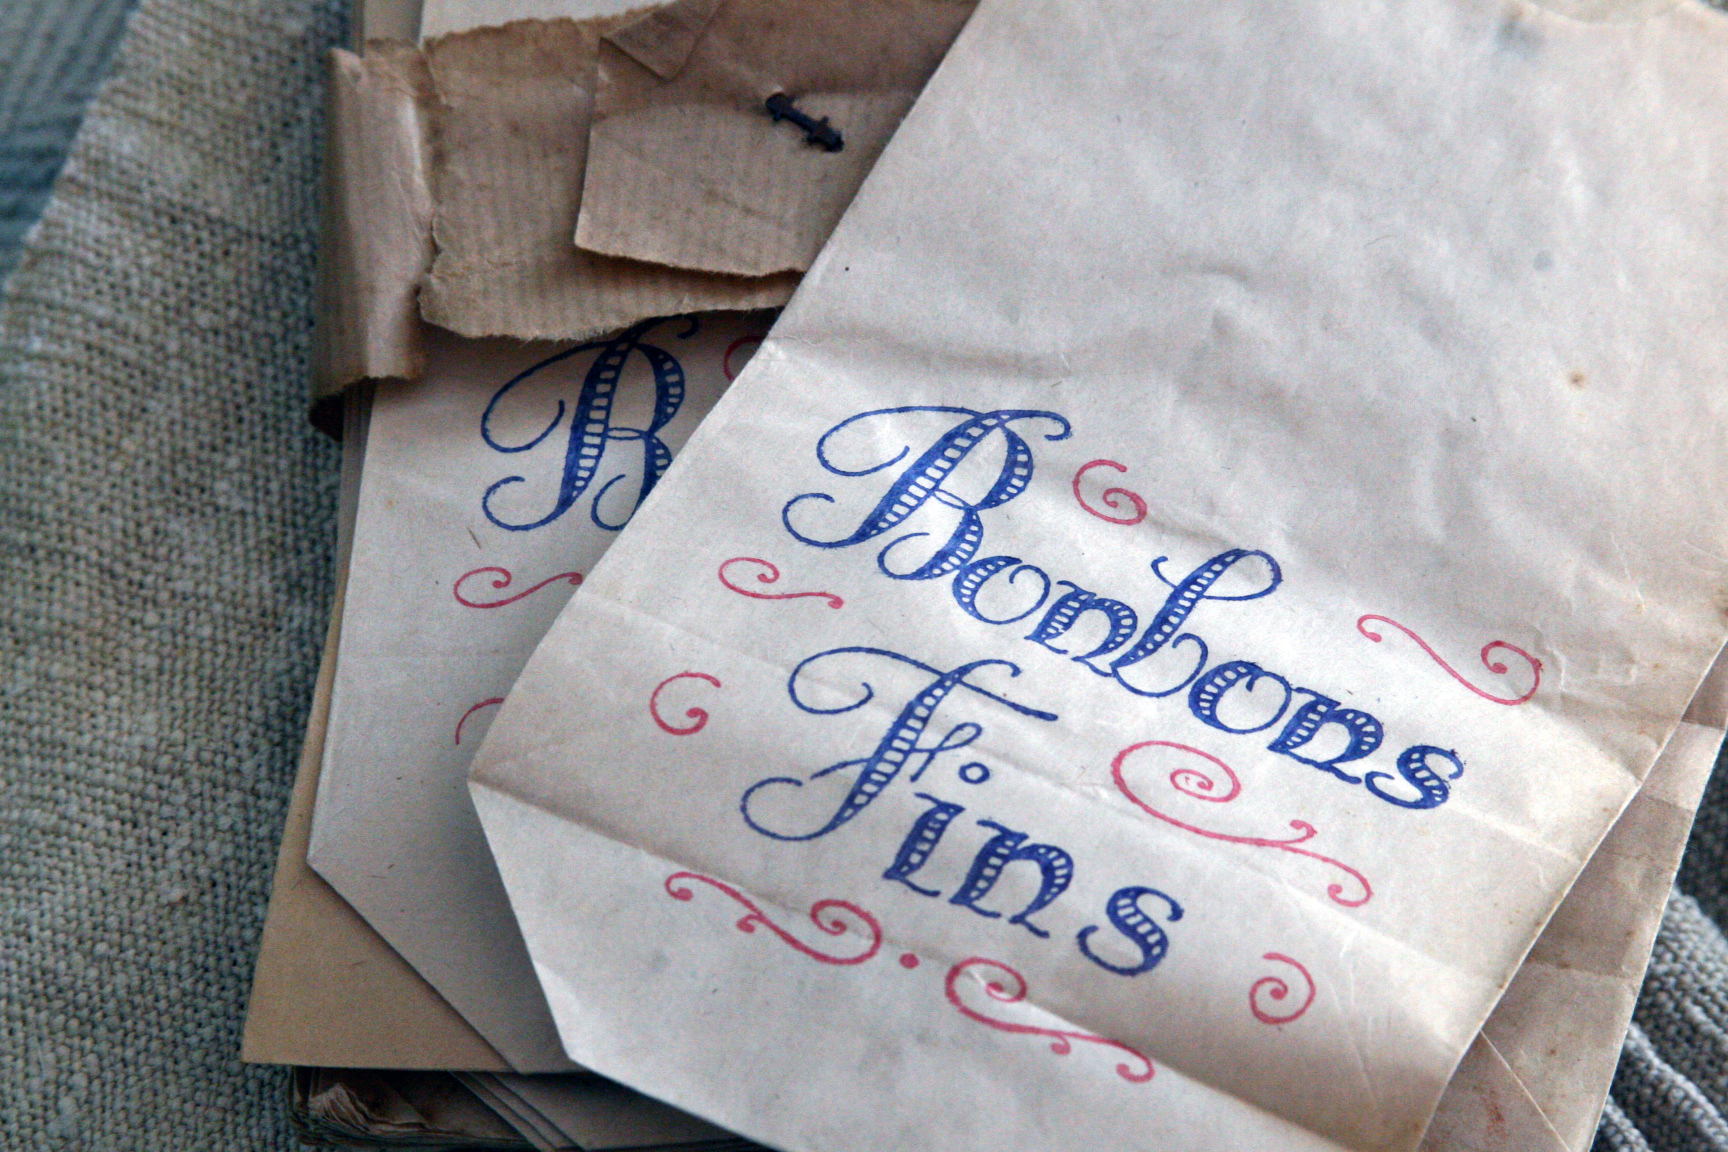 Bonbons
Fins
B